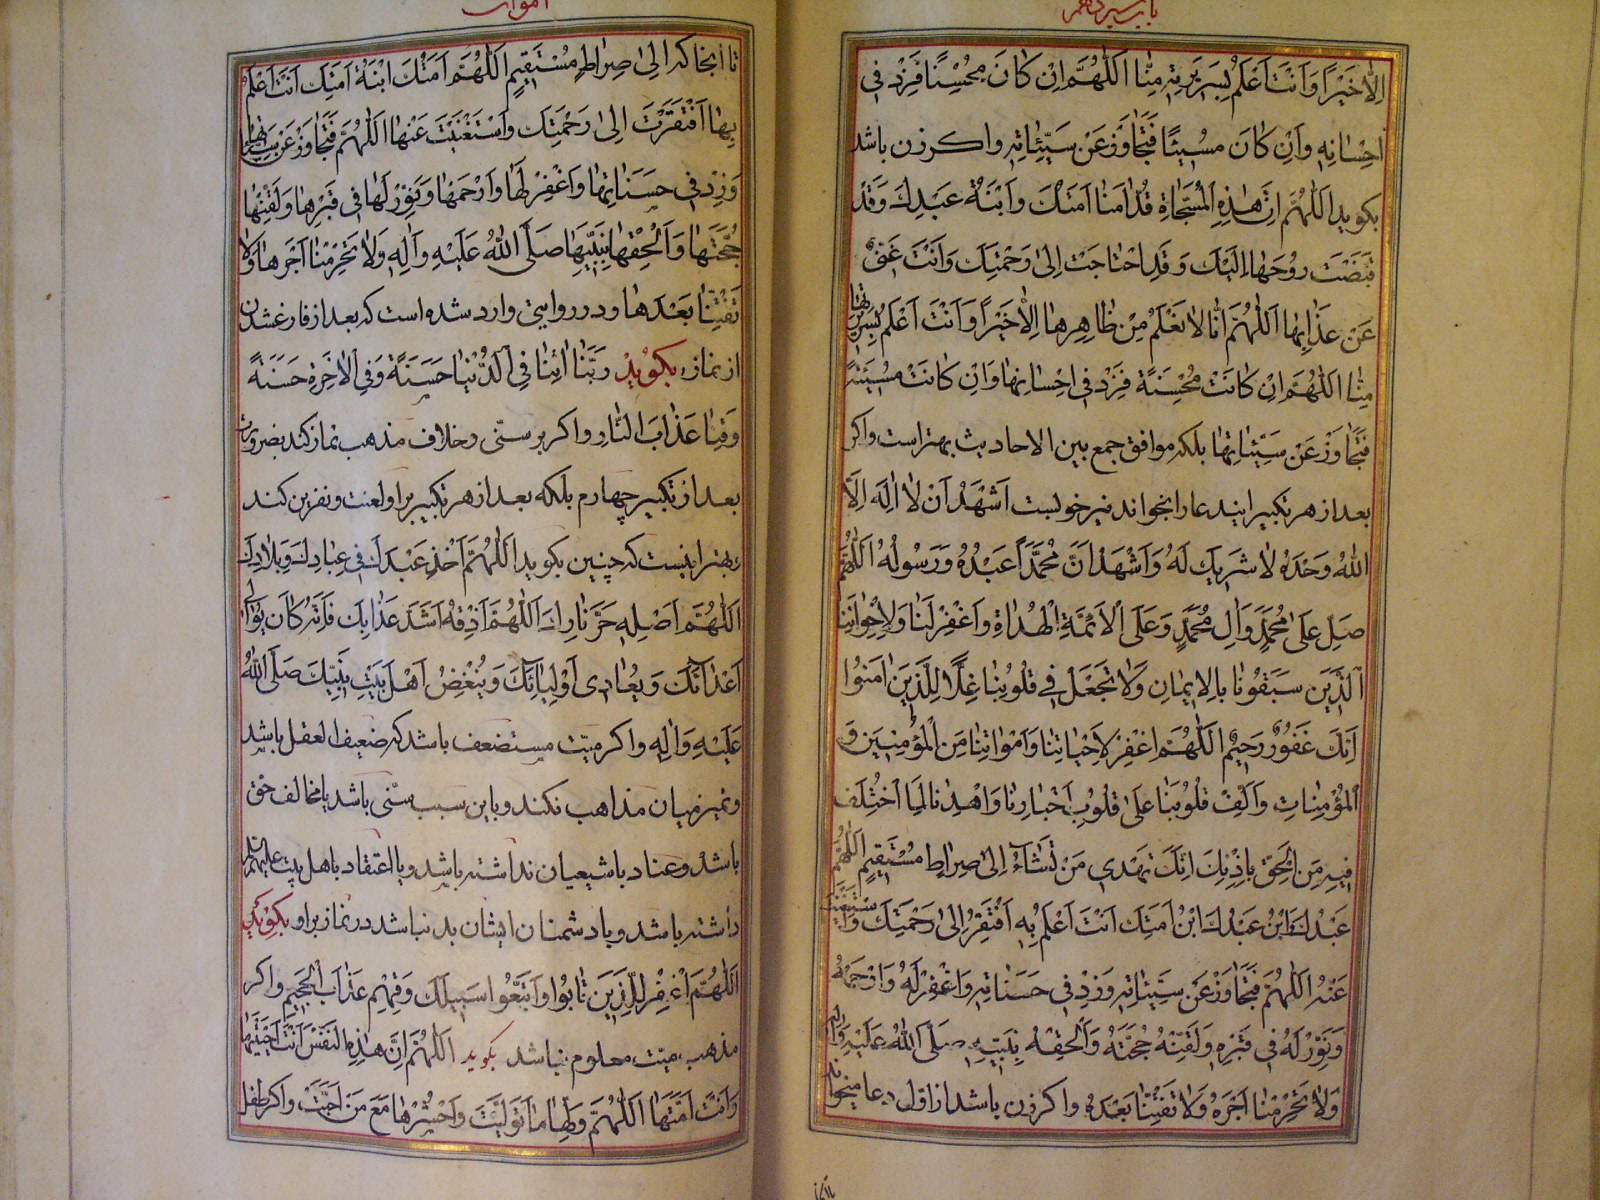 باب سیزدهم
اِلّا خَیْرًا وَ اَنْتَ اَعْلَمُ بِسَریرَتِهِ مِنّا اَللّهُمَّ اِنْ کانَ مُحْسِنًا فَزِدْ فی
اِحْسانِهِ وَ اِنْ کانَ مُسیئًا فَتَجاوَزْ عَنْ سَیِّئاتِهِ و اکر زن باشد
بکوید اَللّهُمَّ اِنَّ هذِهِ الْمُسَجّاةَ قُدّامَنا اَمَتُکَ وَ ابْنَةُ عَبْدِکَ وَ قَدْ
قَبَضْتَ رُوحَها اِلَیْکَ وَ قَدِ احْتاجَتْ اِلی رَحْمَتِکَ وَ اَنْتَ غَنِیٌّ
عَنْ عَذابِها اَللّهُمَّ اِنّا لا نَعْلَمُ مِنْ ظاهِرِها اِلّا خَیْرًا وَ اَنْتَ اَعْلَمُ بِسَریرَتِها
مِنّا اَللّهُمَّ اِنْ کانَتْ مُحْسِنَةً فَزِدْ فی اِحْسانِها وَ اِنْ کانَتْ مُسیئَةً
فَتَجاوَزْ عَنْ سَیِّئاتِها بلکه موافق جمع بین الاحادیث بهتر است و اکر
بعد از هر تکبیر ایندعا را بخواند نیز خوبست اَشْهَدُ اَنْ لا اِلهَ اِلَّا
اللهُ وَحْدَهُ لا شَریکَ لَهُ وَ اَشْهَدُ اَنَّ مُحَمَّدًا عَبْدُهُ وَ رَسُولُهُ اَللّهُمَّ
صَلِّ عَلی مُحَمَّدٍ وَ الِ مُحَمَّدٍ وَ عَلَی الْاَئِمَّةِ الْهُداةِ وَ اغْفِرْ لَنا وَ لِاِخْوانِنَا
الَّذینَ سَبَقُونا بِالْایمانِ وَ لا تَجْعَلْ فی قُلُوبِنا غِلًّا لِلَّذینَ امَنُوا
اِنَّکَ غَفُورٌ رَحیمٌ اَللّهُمَّ اغْفِرْ لِاَحْیائِنا وَ اَمْواتِنا مِنَ الْمُؤْمِنینَ وَ
الْمُؤْمِناتِ وَ اَلِّفْ قُلُوبَنا عَلی قُلُوبِ اَخْیارِنا وَ اهْدِنا لِمَا اخْتُلِفَ
فیهِ مِنَ الْحَقِّ بِاِذْنِکَ اِنَّکَ تَهْدی مَنْ تَشاءُ اِلی صِراطٍ مُسْتَقیمٍ اَللّهُمَّ
عَبْدُکَ وَ ابْنُ عَبْدِکَ وَ ابْنُ اَمَتِکَ اَنْتَ اَعْلَمُ بِهِ اَفْتَقِرُ اِلی رَحْمَتِکَ وَ اسْتَغْنَیْتَ
عَنْهُ اَللّهُمَّ فَتَجاوَزْ عَنْ سَیِّئاتِهِ وَ زِدْ فی حَسَناتِهِ وَ اغْفِرْ لَهُ وَ ارْحَمْهُ
وَ نَوِّرْ لَهُ فی قَبْرِهِ وَ لَقِّنْهُ حُجَّتَهُ وَ اَلْحِقْهُ بِنَبِیِّهِ صَلَّی اللهُ عَلَیْهِ وَ الِهِ
وَ لا تَحْرِمْنا اَجْرَهُ وَ لا تَفْتِنّا بَعْدَهُ و اکر زن باشد از اوّل دعا میخواند
اموات
تا انجا که اِلی صِراطٍ مُسْتَقیمٍ اَللّهُمَّ اَمَتُکَ ابْنَةُ اَمَتِکَ اَنْتَ اَعْلَمُ
بِها اَفْتَقَرَتْ اِلی رَحْمَتِکَ وَ اسْتَغْنَیْتَ عَنْها اَللّهُمَّ فَتَجاوَزْ عَنْ سَیِّئاتِها
وَ زِدْ فی حَسَناتِها وَ اغْفِرْ لَها وَ ارْحَمْها وَ نَوِّرْ لَها فی قَبْرِها وَ لَقِّنْها
حُجَّتَها وَ اَلْحِقْها بِنَبِیِّها صَلَّی اللهُ عَلَیْهِ وَ الِهِ وَ لا تَحْرِمْنا اَجْرَها وَ لا
تَفْتِنّا بَعْدَها و در روایتی وارد شده است که بعد از فارغ شدن
از نماز بکوید رَبَّنا اتِنا فِی الدُّنْیا حَسَنَةً وَ فِی الْاخِرَةِ حَسَنَةً
وَ قِنا عَذابَ النّارِ و اکر بر سنّی و خلاف مذهب نماز کند بضرورت
بعد از تکبیر چهارم بلکه بعد از هر تکبیر بر او لعنت و نفرین کند
و بهتر اینست که چنین بکوید اَللّهُمَّ اَخْزِ عَبْدَکَ فی عِبادِکَ وَ بِلادِکَ
اَللّهُمَّ اَصْلِهِ حَرَّ نارِکَ اَللّهُمَّ اَذِقْهُ اَشَدَّ عَذابِکَ فَاِنَّهُ کانَ یُوالی
اَعْدائَکَ وَ یُعادی اَوْلِیائَکَ وَ یُبْغِضُ اَهْلَ بَیْتِ نَبِیِّکَ صَلَّی اللهُ
عَلَیْهِ وَ الِهِ و اکر میّت مستضعف باشد که ضعیف العقل باشد
و تمیز میان مذاهب نکند و باین سبب سنّی باشد یا مخالف حق
باشد و عناد با شیعیان نداشته باشد و یا اعتقاد باهل بیت علیهم السلام
داشته باشد و با دشمنان ایشان بد نباشد در نماز بر او بکوید
اَللّهُمَّ اغْفِرْ لِلَّذینَ تابُوا وَ اتَّبَعُوا سَبیلَکَ وَ قِهِمْ عَذابَ الْجَحیمِ و اکر
مذهب میّت معلوم نباشد بکوید اَللّهُمَّ اِنَّ هذِهِ النَّفْسَ اَنْتَ اَحْیَیْتَها
وَ اَنْتَ اَمَتَّها اَللّهُمَّ وَلِّها ما تَوَلَّیَتْ وَ احْشُرْها مَعَ مَنْ اَحَبَّتْ و اکر طفل